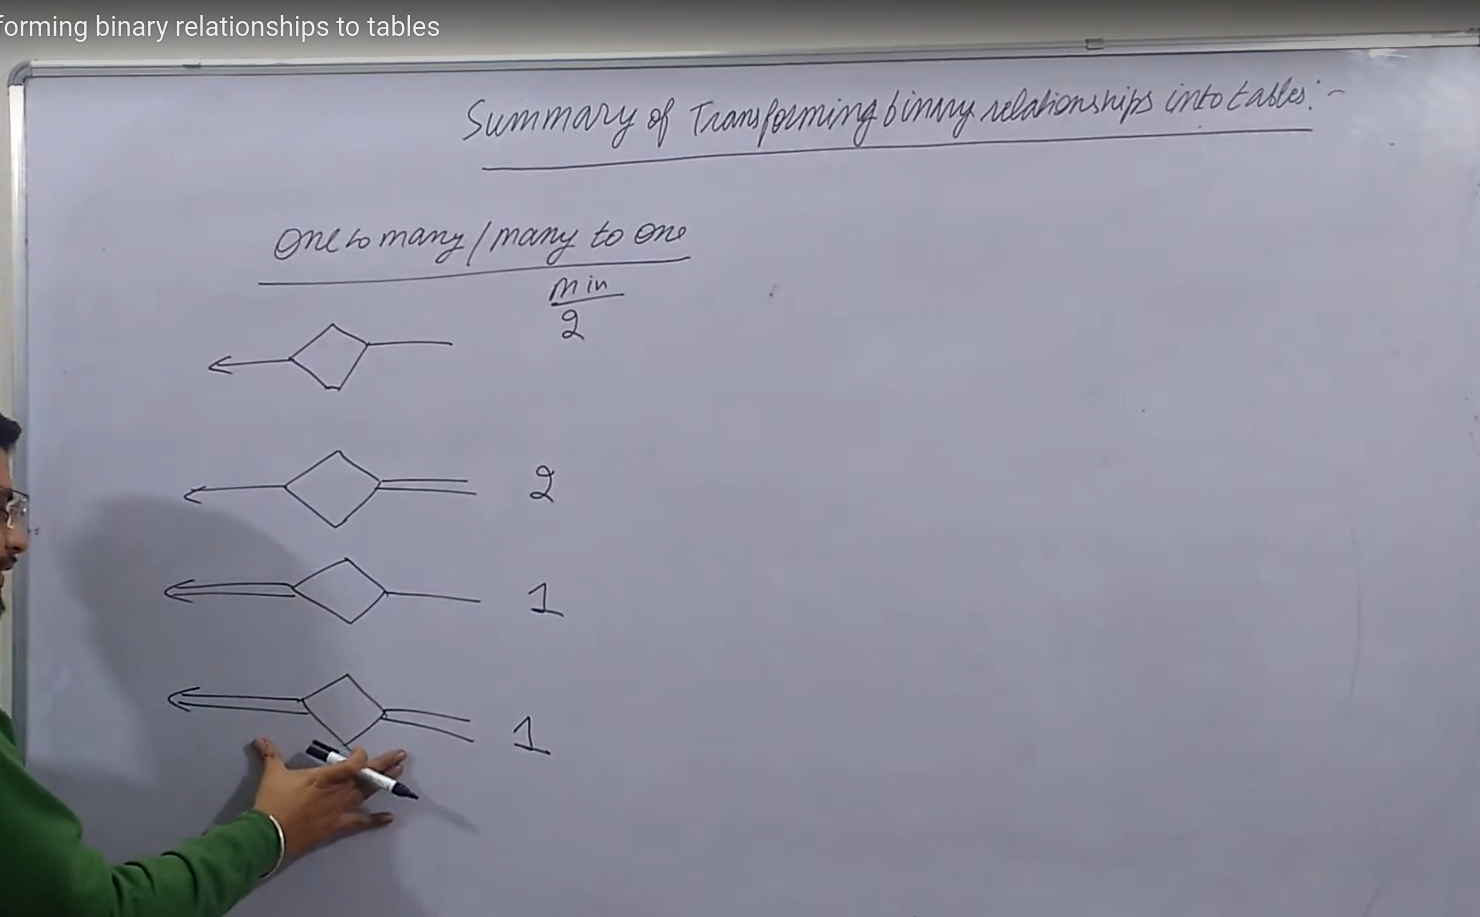 forming binary relationships to tables
Summary of Transforming binary relationships into tables:-
One to many / many to one
min
2
2
1
1